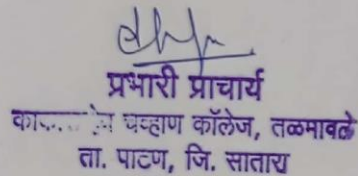 प्रभारी प्राचार्य
चव्हाण कॉलेज, तळमावले
ता. पाटण, जि. सातारा